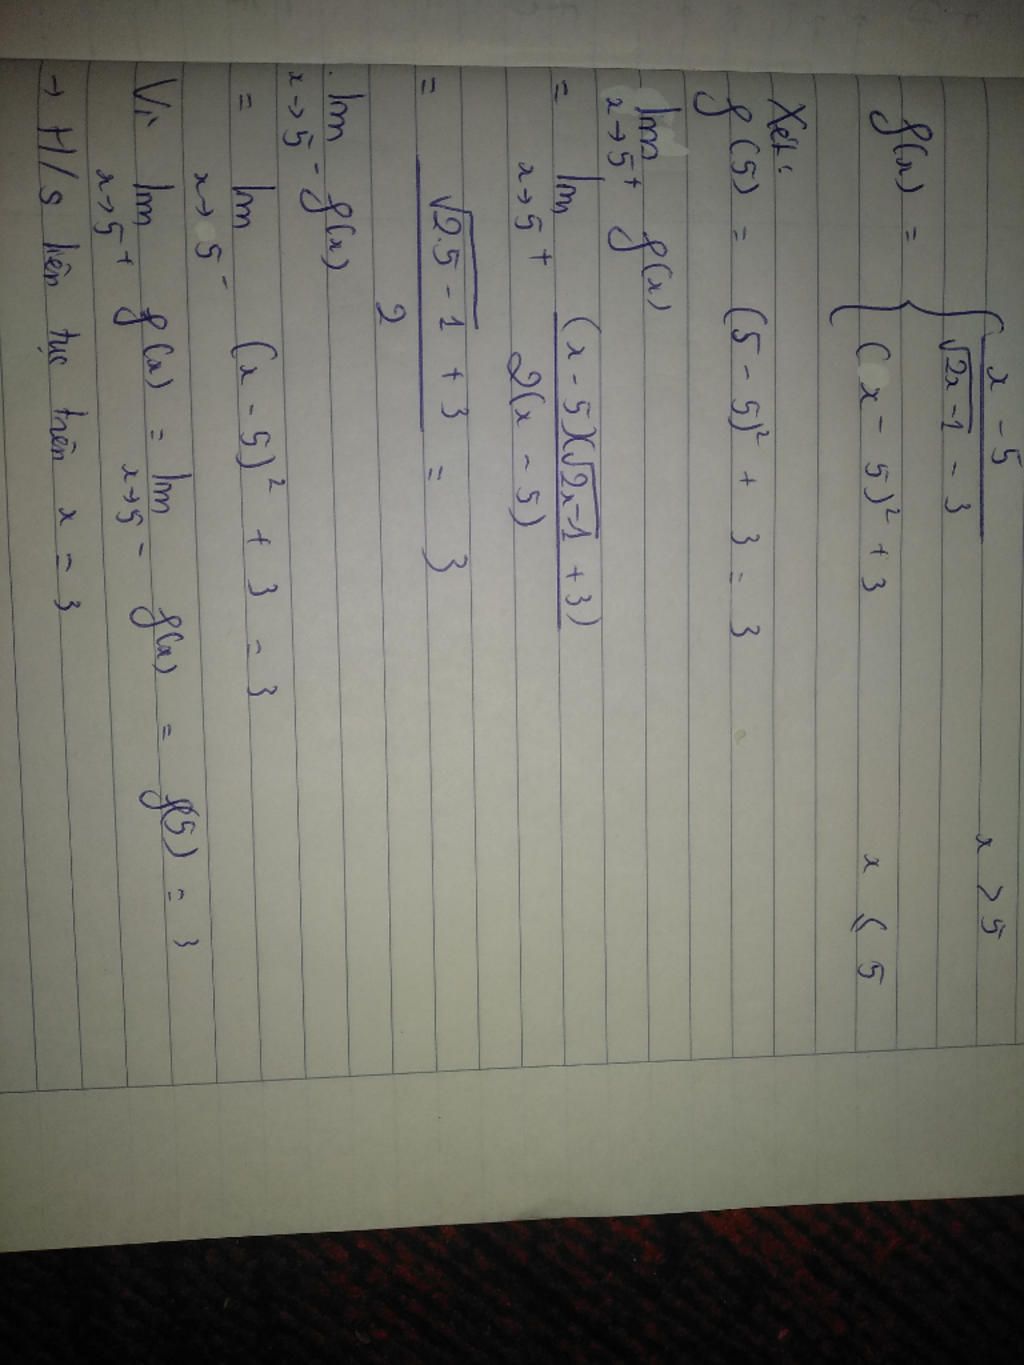 f(x) = { x - 5 / √2x-1 - 3    x > 5
(x - 5)² + 3    x ≤ 5
Xét:
f(5) = (5 - 5)² + 3 = 3
lim x→5⁺ f(x)
= lim x→5⁺ (x - 5)(√2x-1 + 3) / 2(x - 5)
= √2.5 - 1 + 3 / 2 = 3
lim x→5⁻ f(x)
= lim x→5⁻ (x - 5)² + 3 = 3
Vì lim x→5⁺ f(x) = lim x→5⁻ f(x) = f(5) = 3
→ H/s liên tục trên x = 3